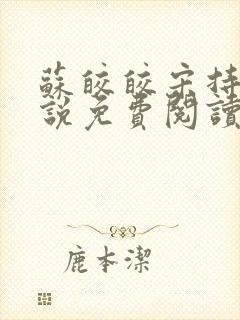 蘇皎皎宋持
說免費閱讀
鹿本潔